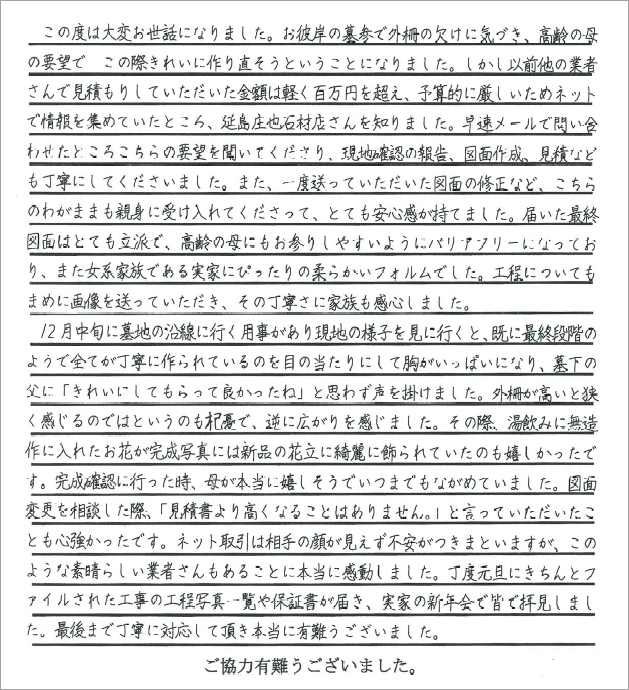 この度は大変お世話になりました。お彼岸の墓参で外柵の欠けに気づき、高齢の母
の要望で　この際きれいに作り直そうということになりました。しかし以前他の業者
さんで見積もりしていただいた金額は軽く百万円を超え、予算的に厳しいためネット
で情報を集めていたところ、延島庄也石材店さんを知りました。早速メールで問い合
わせたところこちらの要望を聞いてくださり、現地確認の報告、図面作成、見積など
も丁寧にしてくださいました。また、一度送っていただいた図面の修正など、こちら
のわがままも親身に受け入れてくださって、とても安心感が持てました。届いた最終
図面はとても立派で、高齢の母にもお参りしやすいようにバリアフリーになってお
り、また女系家族である実家にぴったりの柔らかいフォルムでした。工程についても
まめに画像を送っていただき、その丁寧さに家族も感心しました。
12月中旬に墓地の沿線に行く用事があり現地の様子を見に行くと、既に最終段階の
ようで全てが丁寧に作られているのを目の当たりにして胸がいっぱいになり、墓下の
父に「きれいにしてもらって良かったね」と思わず声を掛けました。外柵が高いと狭
く感じるのではというのも杞憂で、逆に広がりを感じました。その際、湯飲みに無造
作に入れたお花が完成写真には新品の花立に綺麗に飾られていたのも嬉しかったで
す。完成確認に行った時、母が本当に嬉しそうでいつまでもながめていました。図面
変更を相談した際、「見積書より高くなることはありません。」と言っていただいたこ
とも心強かったです。ネット取引は相手の顔が見えず不安がつきまといますが、この
ような素晴らしい業者さんもあることに本当に感動しました。丁度元旦にきちんとフ
ァイルされた工事の工程写真一覧や保証書が届き、実家の新年会で皆で拝見しまし
た。最後まで丁寧に対応して頂き本当に有難うございました。
ご協力有難うございました。